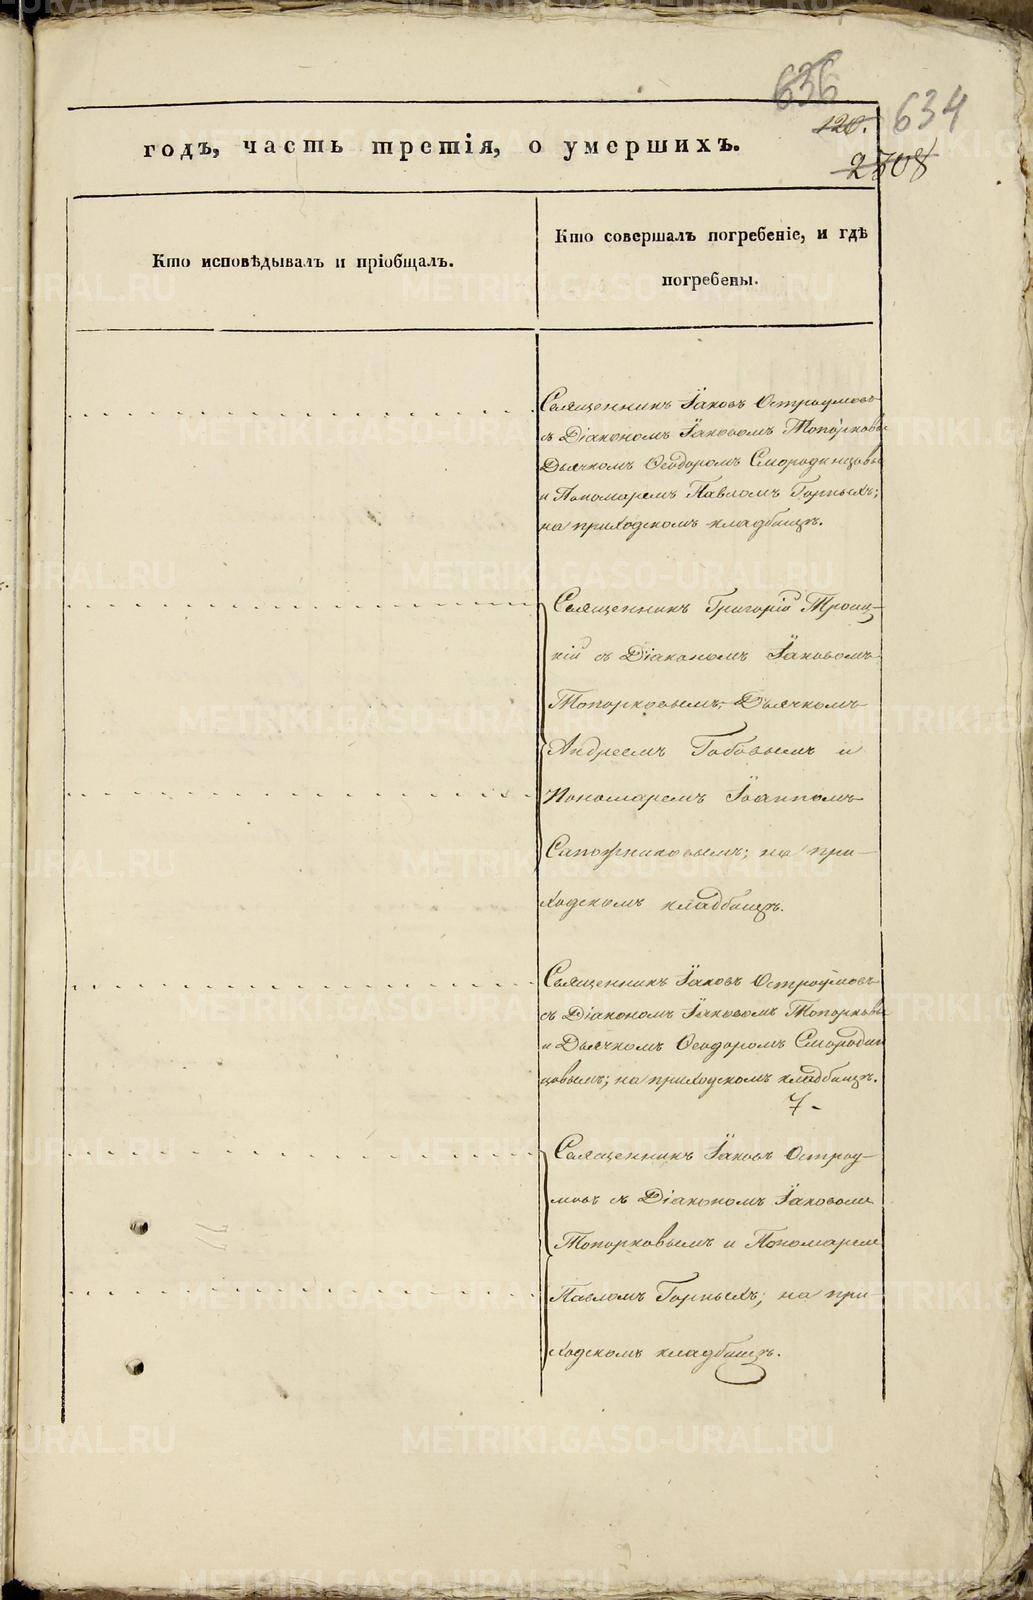 636
634
120.
2308
годъ, часть третія, о умершихъ.
Кто исповѣдывалъ и пріобщалъ.
Кто совершалъ погребеніе, и гдѣ
погребены.
Священникъ Іаковъ Остроумовъ
съ Діакономъ Іаковомъ Топорковы
Дьячкомъ Ѳеодоромъ Смородинцовы
и Пономаремъ Павломъ Горныхъ;
на приходскомъ кладбищѣ.
Священникъ Григорій Троиц-
кій съ Діакономъ Іаковомъ
Топорковымъ, Дьячкомъ
Андреемъ Бабовымъ и
Пономаремъ Іоанномъ
Сапожниковымъ; на при-
ходскомъ кладбищѣ.
Священникъ Іаковъ Остроумовъ
съ Діакономъ Іаковомъ Топорковы
и Дьячкомъ Ѳеодоромъ Смородин
цовымъ; на приходскомъ кладбищѣ.
7-
Священникъ Іаковъ Остроу-
мовъ съ Діакономъ Іаковомъ
Топорковымъ и Пономаремъ
Павломъ Горныхъ; на при-
ходскомъ кладбищѣ.
METRIKI.GASO-URAL.RU